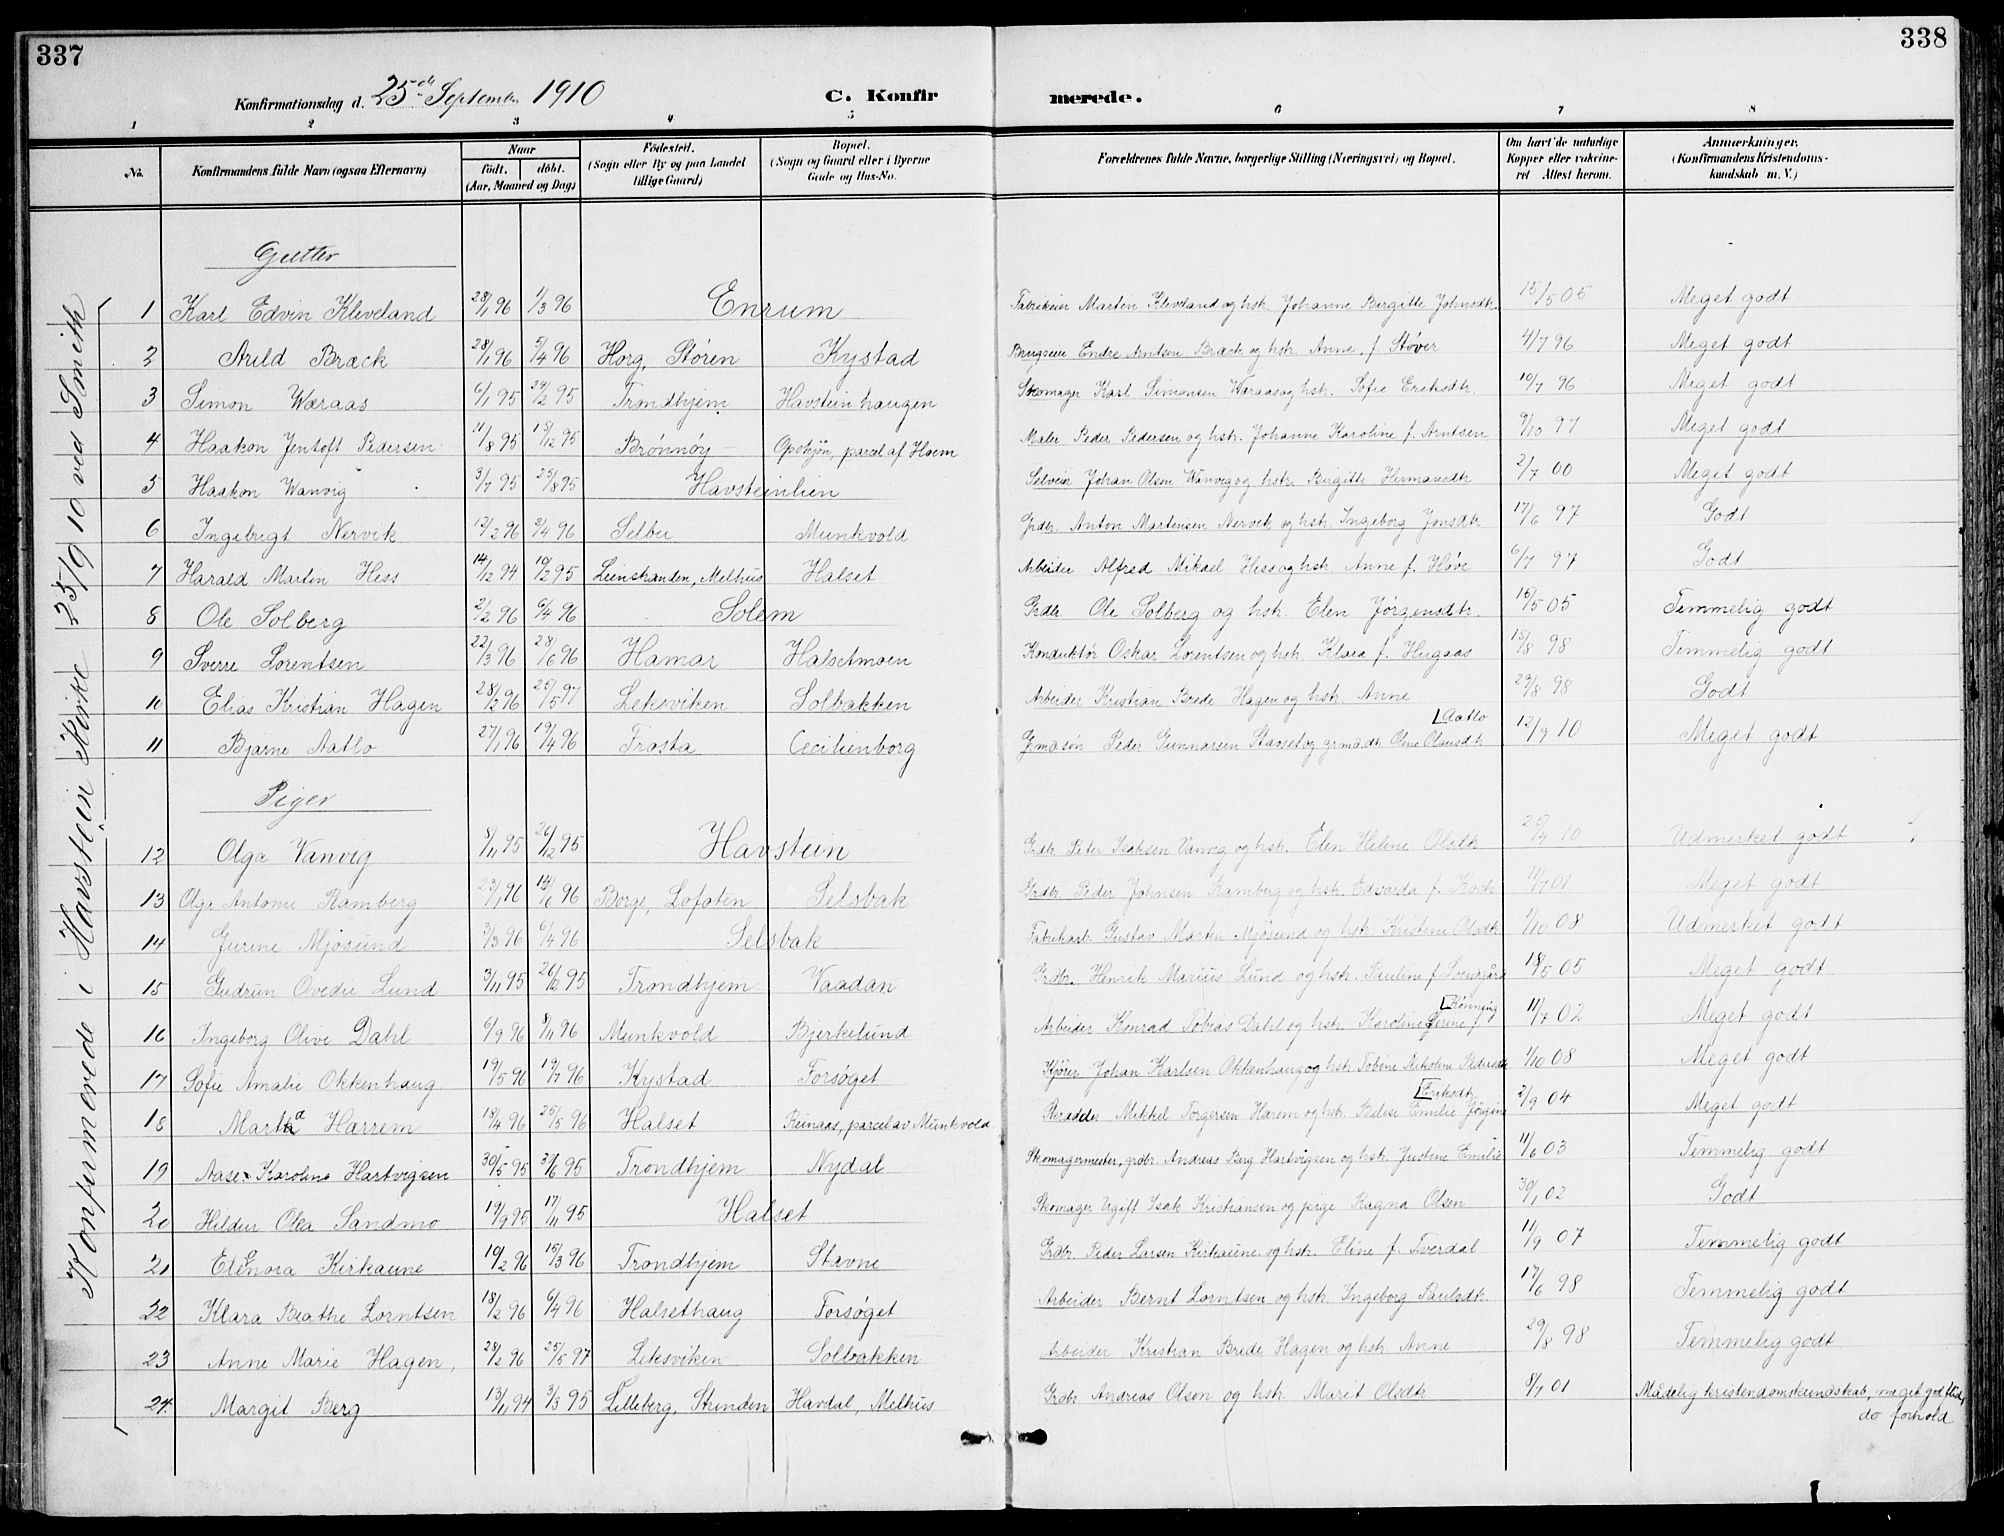 337
338
Konfirmationsdag d. 25de September 1910
C. Konfir
merede.
1 2 3 4 5 6 7 8
No.
Konfirmandens fulde Navn (ogsaa Efternavn)
Naar
født, døbt,
(Aar, Maaned og Dag)
Fødested.
(Sogn eller By og paa Landet tillige Gaard)
Bopæl.
(Sogn og Gaard eller i Byerne Gade og Hus-No.
Forældrenes fulde Navne, borgerlige Stilling (Næringsvei) og Bopæl.
Om havt de naturlige Kopper eller vakcineret Attest herom.
Anmærkninger.
(Konfirmandens Kristendomskundskab m. V.)
Konfirmerede i Havstein Kirke 25/9 10 ved Smith
Gutter
1 Karl Edvin Kleveland 28/1 96 1/3 96 Enrum Fabrikeier Marten Kleveland og hstr. Johanne Birgitte Johnsdtr. 15/5 05 Meget godt
2 Arild Bræck 28/1 96 5/4 96 Horg, Støren Kystad Brugseier Endre Arntsen Bræck og hstr. Anne f. Støver 4/7 96 Meget godt
3 Simon Wæraas 6/1 95 24/2 95 Trondhjem Havsteinhaugen Skomager Karl Simonsen Waraas og hstr. Sofie Eriksdtr. 10/7 96 Meget godt
4 Haakon Jentoft Pedersen 11/8 95 18/12 95 Brønnøy Opshjön, parcel af Hoem Maler Peder Pedersen og hstr. Johanne Karoline f. Arntsen 9/10 97 Meget godt
5 Haakon Wanvig 3/7 95 25/8 95 Havsteinlien Selveier Johan Olsen Wanvig og hstr. Birgitte Hermansdtr 2/7 00 Meget godt
6 Ingebrigt Nervik 12/2 96 2/4 96 Selbu Munkvold Grdbr. Anton Martensen Nervik og hstr. Ingeborg Jonsdtr 17/6 97 Godt
7 Harald Marten Hess 14/12 94 10/2 95 Leinstranden, Melhus Halset Arbeider Alfred Mikael Hess og hstr. Anne f. Høve 6/7 97 Godt
8 Ole Solberg 2/2 96 6/4 96 Solem Grdbr Ole Solberg og hstr. Elen Jørgensdtr. 16/5 05 Temmelig godt
9 Sverre Lorentsen 22/3 96 28/6 96 Hamar Halsetmoen Konduktør Oskar Lorentsen og hstr. Klara f. Hugaas 15/8 98 Temmelig godt
10 Elias Kristian Hagen 28/2 96 25/5 97 Leksviken Solbakken Arbeider Kristian Brede Hagen og hstr. Anne 29/8 98 Godt
11 Bjarne Aatlo 27/1 96 19/4 96 Frosta Cecilienborg Grmasøn Peder Gunnarsen Stavset og grmadtr. Oline Olausdtr [Aatlo 12/9 10 Meget godt
Piger
12 Olga Vanvig 8/11 95 26/12 95 Havstein Grdbr Peter Isaksen Vanvig og hstr. Elen Helene Olsdtr 25/4 10 Udmerket godt
13 Olga Antonie Ramberg 23/1 96 14/6 96 Borge, Lofoten Selsbak Grdbr. Peder Johnsen Ramberg og hstr. Edvarda f. Koch 11/7 01 Meget godt
14 Jurine Mjøsund 3/3 96 6/4 96 Selsbak Fabrikarb. Gustav Martin Mjøsund og hstr. Kristine Olsdtr 1/10 08 Udmerket godt
15 Gudrun Ovedie Lund 3/11 95 26/12 95 Trondhjem Vaadan Grdbr. Henrik Marius Lund og hstr. Pauline f. Svendgård 18/5 05 Meget godt
16 Ingeborg Olive Dahl 6/9 96 8/11 96 Munkvold Bjerkelund Arbeider Konrad Tobias Dahl og hstr. Karoline Serine f. [Rønning 11/7 02 Meget godt
17 Sofie Amalie Okkenhaug 19/5 96 19/7 96 Kystad Forsøget Kjører Johan Karlsen Okkenhaug og hstr. Tobine Nikoline Pedersdtr 1/10 08 Meget godt
18 Martha Harrem 18/4 96 25/5 96 Halset Reinaas, parcel av Munkvold Mikkel Torgersen Harem og hstr. Emilie Jørgine [Eriksdtr 2/9 04 Meget godt
19 Aase Karoline Hartvigsen 30/5 95 30/6 95 Trondhjem Nydal Skomagermester, grdbr. Andreas Berg Hartvigsen og hstr. Justine Emilie 11/6 03 Temmelig godt
20 Hildur Olea Sandmo 19/9 95 17/11 95 Halset Skomager Ugift Isak Kristiansen og pige Ragna Olsen 30/1 02 Godt
21 Elenora Kirkaune 10/2 96 15/3 96 Trondhjem Stavne Grdbr. Peder Larsen Kirkaune og hstr. Eline f. Tverdal 11/9 07 Temmelig godt
22 Klara Beathe Lorntsen 18/2 96 6/4 96 Halsethaug Forsøget Arbeider Bernt Lorntsen og hstr. Ingeborg Paulsdtr. 17/6 98 Temmelig godt
23 Anne Marie Hagen 28/2 96 25/5 97 Leksviken Solbakken Arbeider Kristian Brede Hagen og hstr. Anne 29/8 98 Temmelig godt
24. Margit Berg 13/11 94 3/3 95 Lilleberg, Strinden Havdal, Melhus Grdbr Andreas Olsen og hstr. Marit Olsdtr. 8/7 01 Mådelig kristendomskundskab, meget godt flid,
do forhold